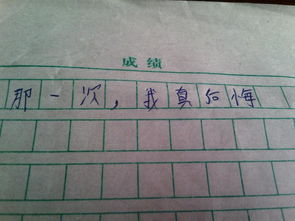 成绩
那一次，我真后悔